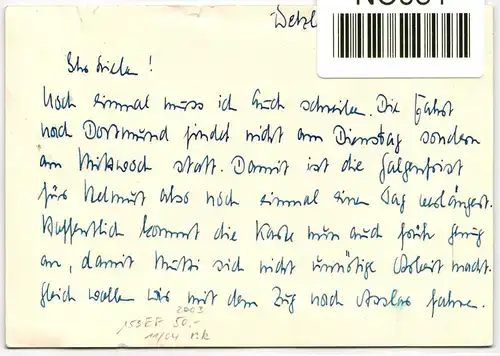 Wetzl
Ihr Lieben!
Noch einmal muss ich Euch schreiben. Die Fahrt
nach Dortmund findet nicht am Dienstag sondern
am Mittwoch statt. Damit ist die Galgenfrist
für Helmut also noch einmal einen Tag verlängert.
Hoffentlich kommt die Karte nun auch früh genug
an, damit Mutti sich nicht unnötige Arbeit macht.
Gleich wollen wir mit dem Zug nach Asslar fahren.
2003
153EF 50.-
11/04